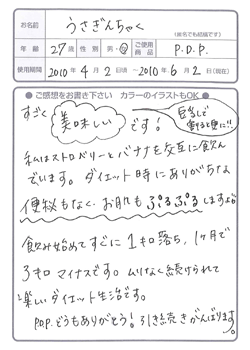 お名前 うさぎんちゃく
(仮名でも結構です)
年齢 27歳 性別 男・女 ご使用商品 P.D.P.
使用期間 2010年4月2日頃 ～ 2010年6月2日(現在)
● ご感想をお書き下さい カラーのイラストもOK ●
すごく 美味しい です!
私はストロベリーとバナナを交互に飲ん
でいます。ダイエット時にありがちな
便秘もなく、お肌も ぷるぷるしますよ
飲み始めてすぐに1キロ落ち、1ヶ月で
3キロマイナスです。ムリなく続けられて
楽しいダイエット生活です。
P.D.P. どうもありがとう! 引き続きがんばります。